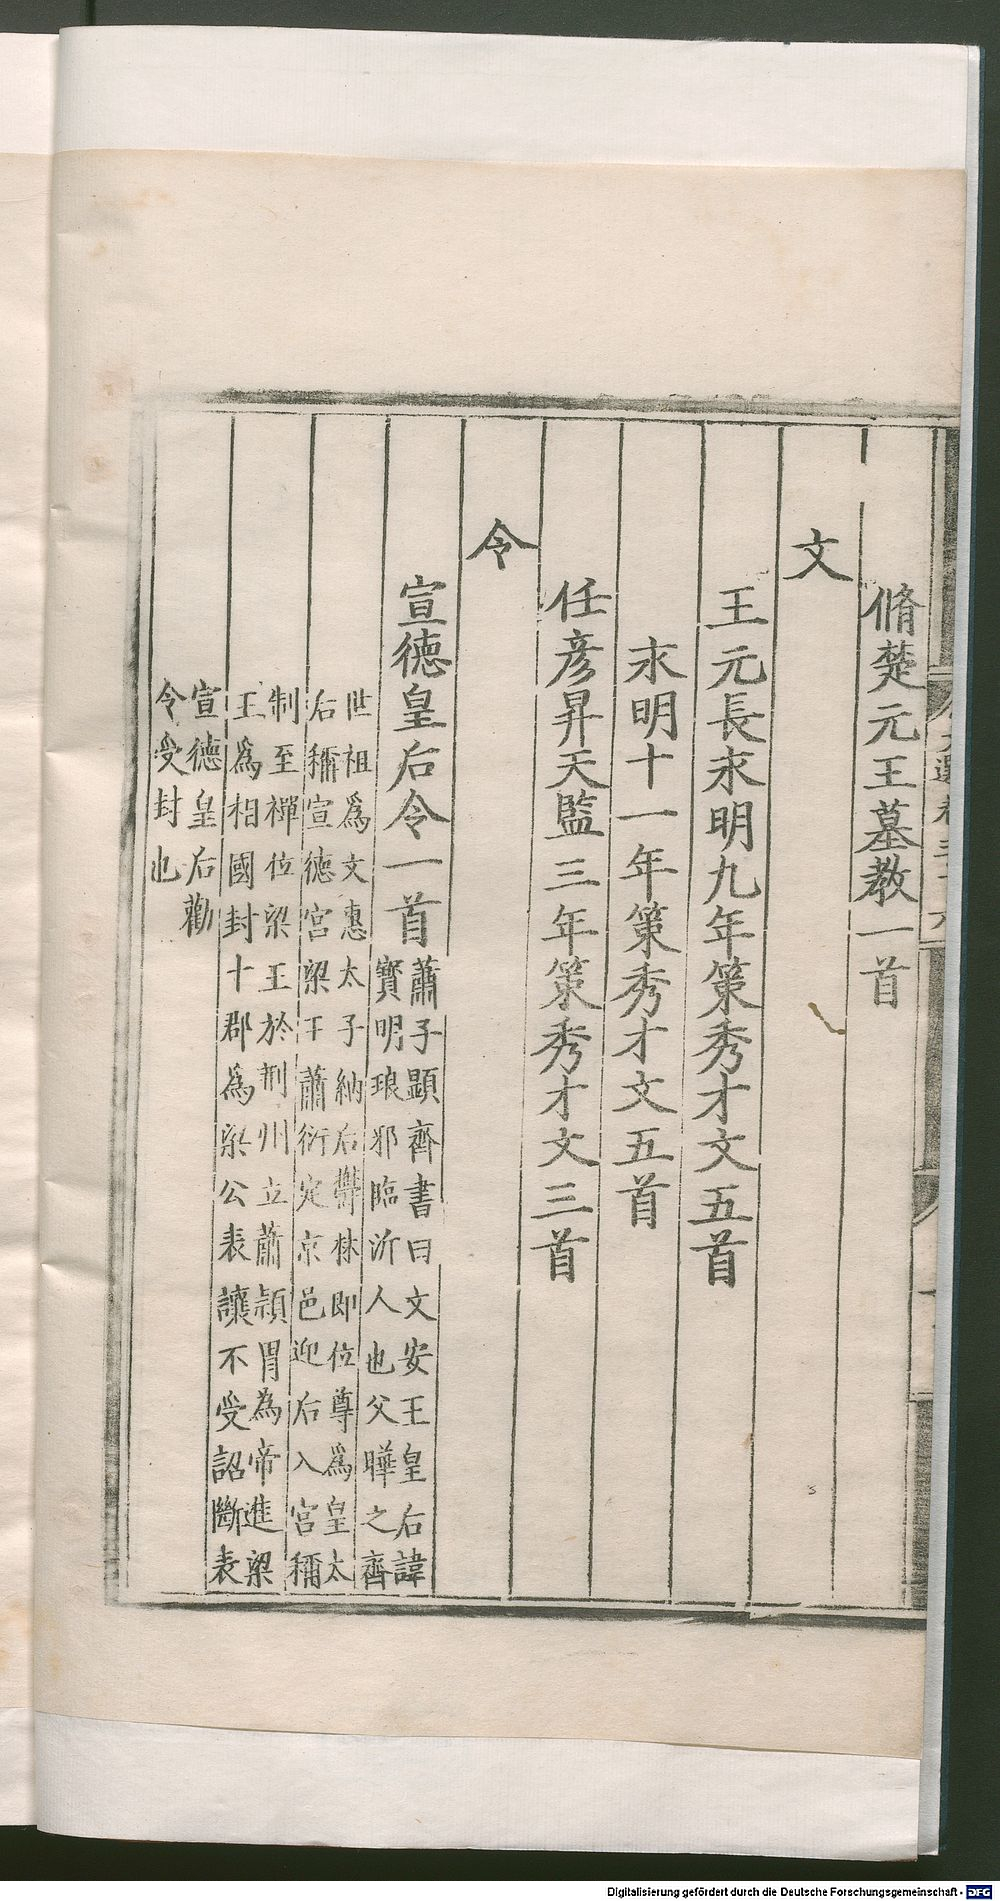 脩楚元王墓教一首
文
王元長永明九年策秀才文五首
永明十一年策秀才文五首
任彦昇天監三年策秀才文三首
令
宣德皇后令一首
蕭子顯齊書曰文安王皇后諱
寳明琅邪臨沂人也父曄之齊
世祖爲文惠太子納后欝林即位尊爲皇太
后稱宣德宮梁王蕭衍定京邑迎后入宮稱
制至禪位梁王於荆州立蕭頴胄為帝進梁
王爲相國封十郡為梁公表讓不受詔斷表
宣德皇后勸
令受封也
Digitalisierung gefördert durch die Deutsche Forschungsgemeinschaft - DFG